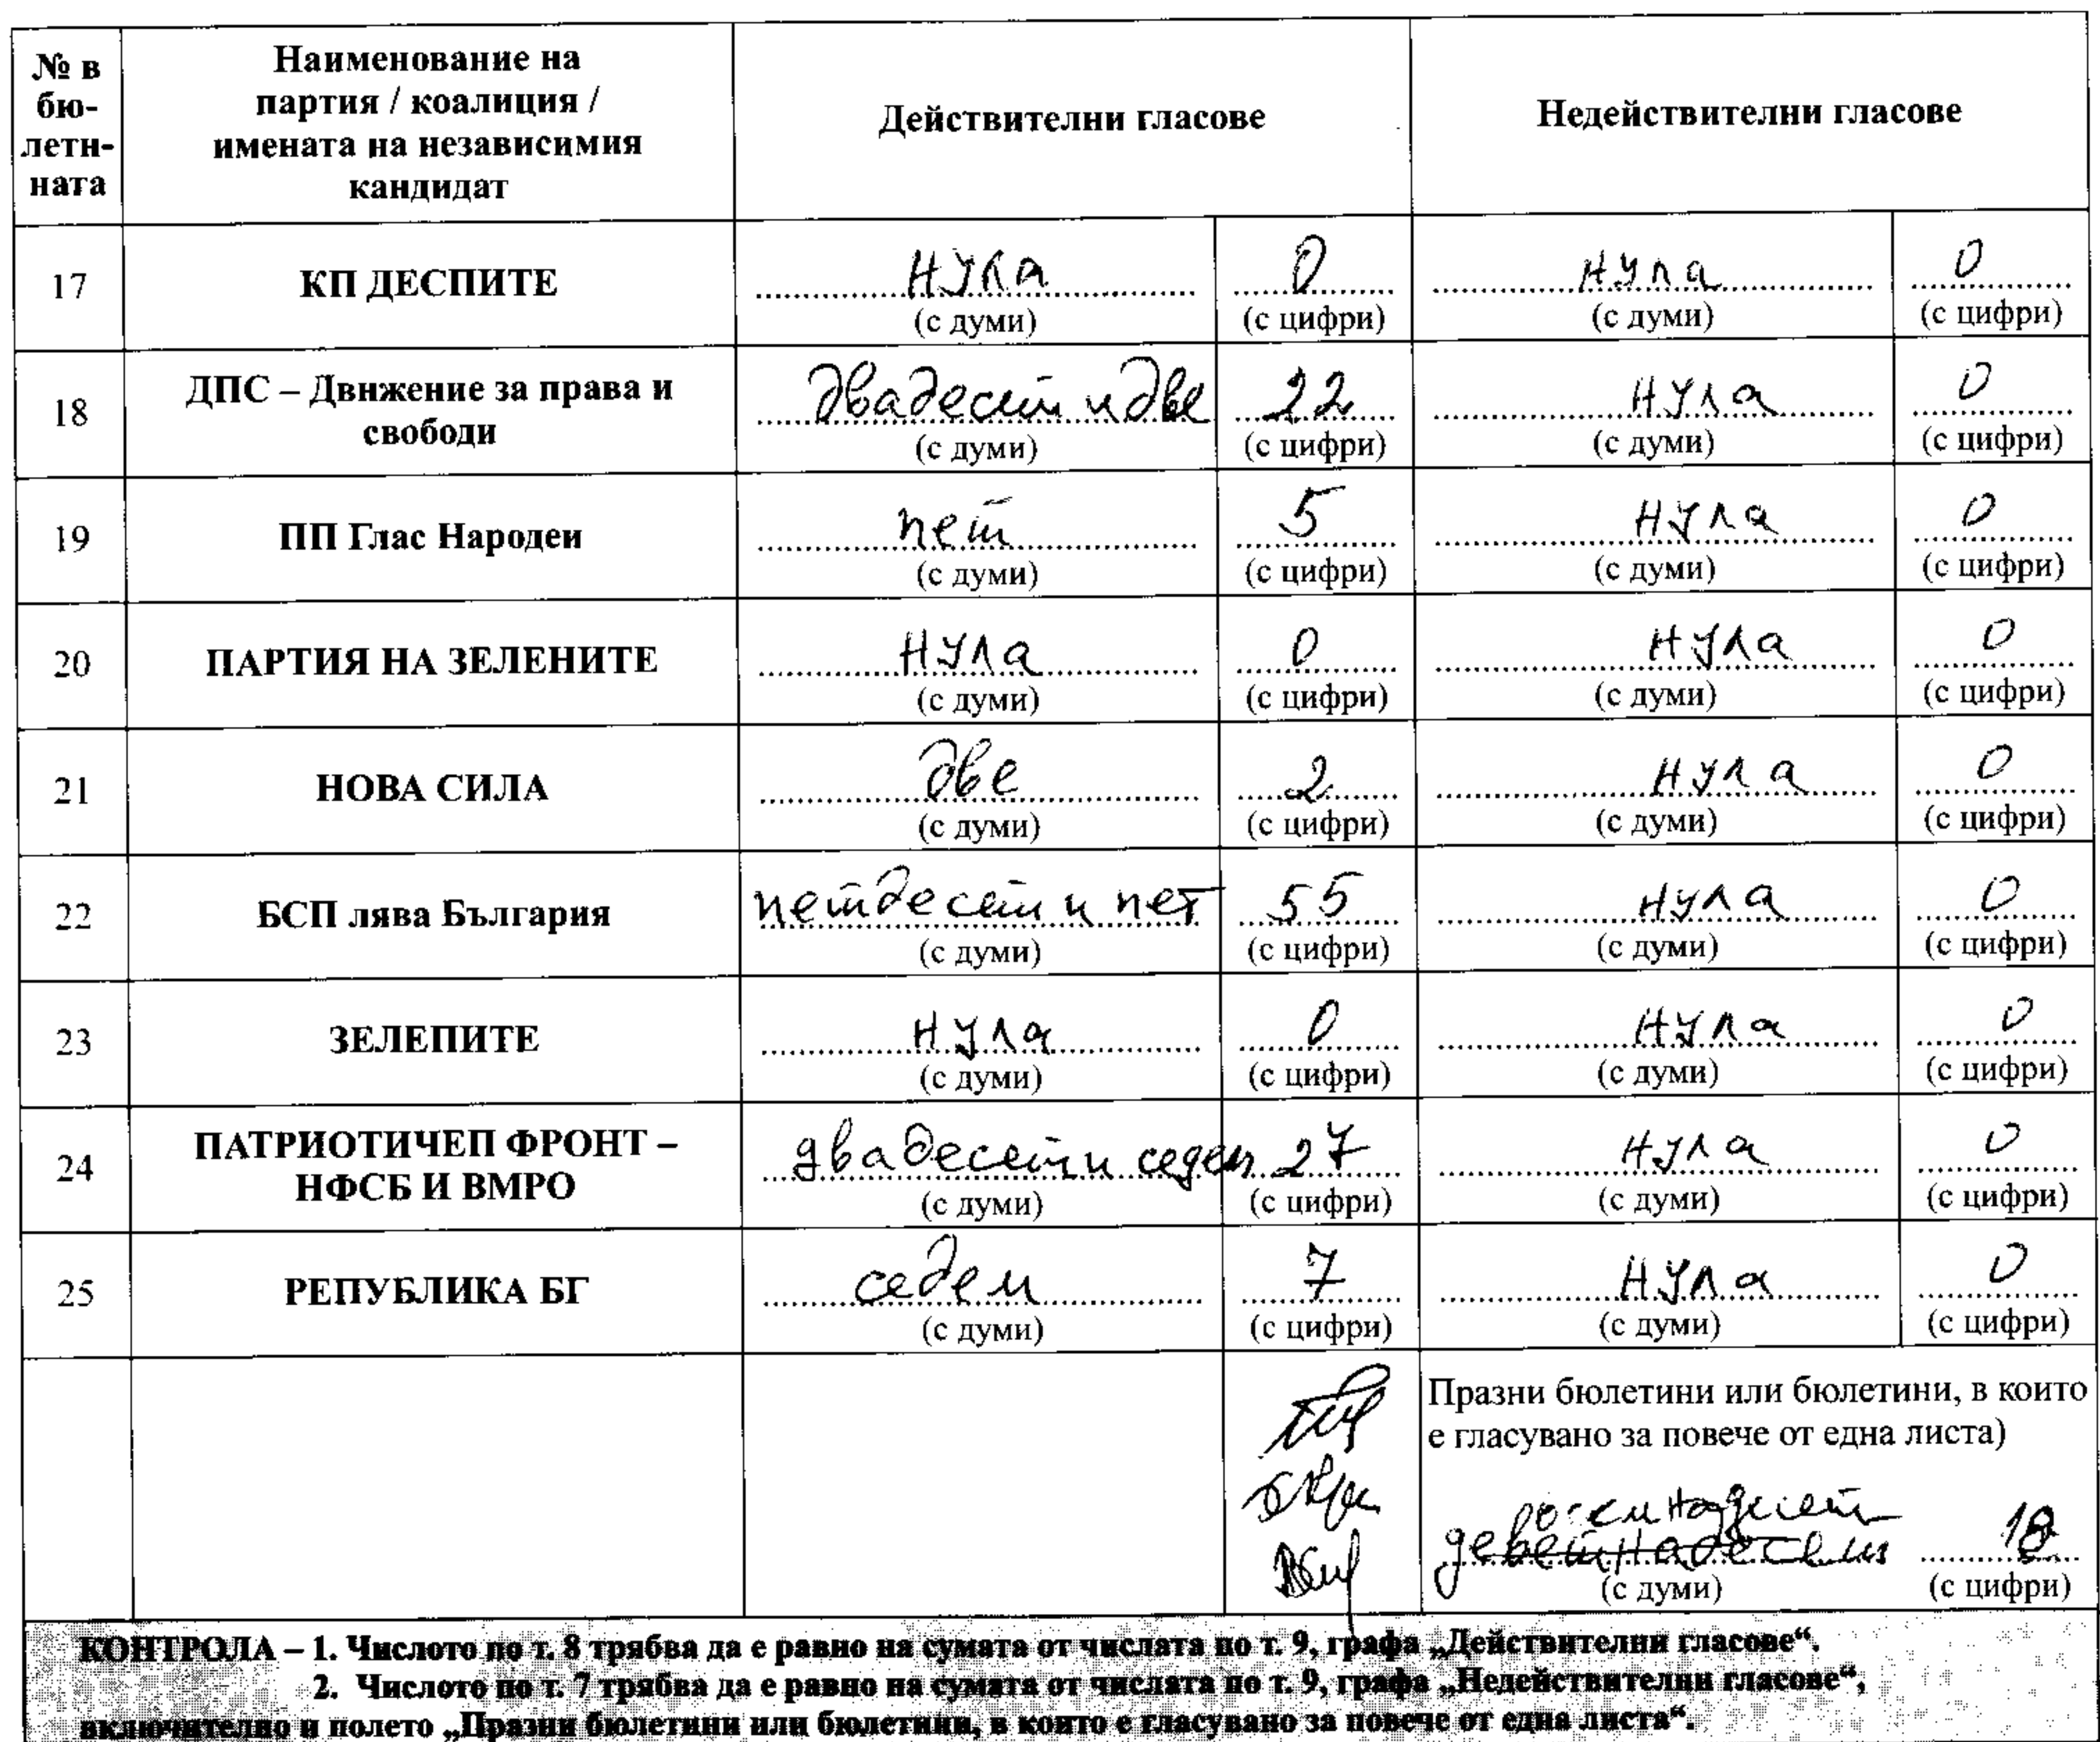 № в
бю-
летн-
ната
Наименование на
партия / коалиция /
имената на независимия
кандидат
Действителни гласове
Недействителни гласове
17 КП ДЕСПИТЕ нула 0 нула 0
(с думи) (с цифри) (с думи) (с цифри)
18 ДПС – Движение за права и
свободи двадесет и две 22 нула 0
(с думи) (с цифри) (с думи) (с цифри)
19 ПП Глас Народеи пет 5 нула 0
(с думи) (с цифри) (с думи) (с цифри)
20 ПАРТИЯ НА ЗЕЛЕНИТЕ нула 0 нула 0
(с думи) (с цифри) (с думи) (с цифри)
21 НОВА СИЛА две 2 нула 0
(с думи) (с цифри) (с думи) (с цифри)
22 БСП лява България петдесет и пет 55 нула 0
(с думи) (с цифри) (с думи) (с цифри)
23 ЗЕЛЕПИТЕ нула 0 нула 0
(с думи) (с цифри) (с думи) (с цифри)
24 ПАТРИОТИЧЕП ФРОНТ –
НФСБ И ВМРО двадесет и седем 27 нула 0
(с думи) (с цифри) (с думи) (с цифри)
25 РЕПУБЛИКА БГ седем 7 нула 0
(с думи) (с цифри) (с думи) (с цифри)
Празни бюлетини или бюлетини, в които
е гласувано за повече от една листа)
осемнадесет
деветнадесет 18
(с думи) (с цифри)
КОНТРОЛА – 1. Числото по т. 8 трябва да е равно на сумата от числата по т. 9, графа „Действителни гласове“.
2. Числото по т. 7 трябва да е равно на сумата от числата по т. 9, графа „Недействителни гласове“,
включително и полето „Празни бюлетини или бюлетини, в които е гласувано за повече от една листа“.